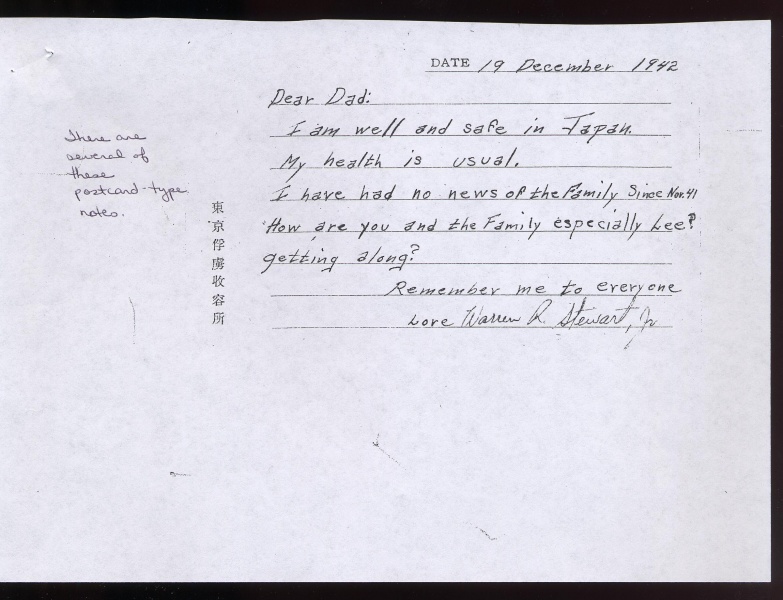 DATE 19 December 1942
Dear Dad:
I am well and safe in Japan.
My health is usual.
I have had no news of the Family Since Nov. 41
How are you and the Family especially Lee?
getting along?
Remember me to everyone
Love Warren R. Stewart, Jr
There are
several of
these
postcard-type
notes.
東京俘虜収容所